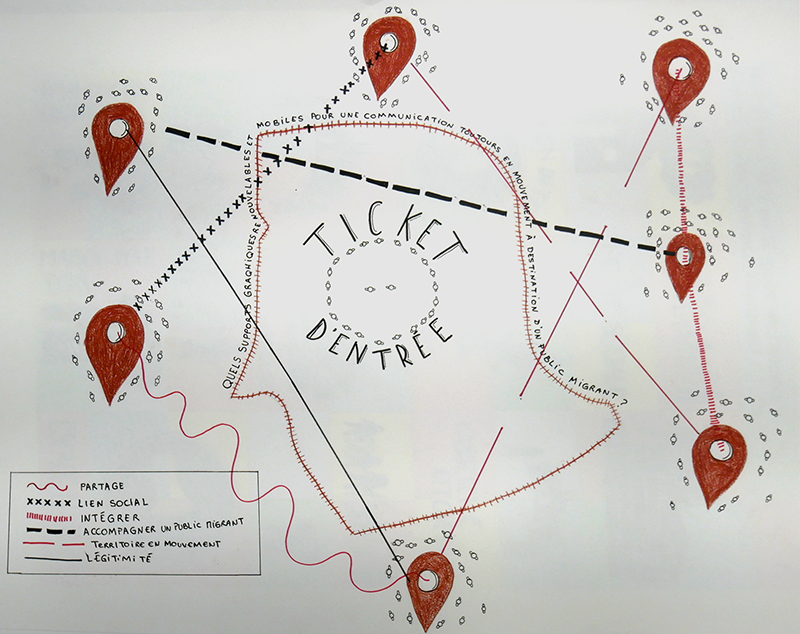 QUELS SUPPORTS GRAQHIQUES RENOUVELABLES ET
MOBILES POUR UNE COMMUNICATION TOUJOURS EN MOUVEMENT À DESTINATION D'UN PUBLIC MIGRANT ?
TICKET
D'ENTRÉE
PARTAGE
LIEN SOCIAL
INTÉGRER
ACCOMPAGNER UN PUBLIC MIGRANT
TERRITOIRE EN MOUVEMENT
LÉGITIMITÉ